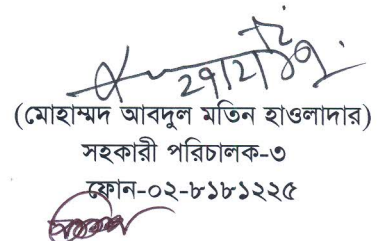 ২৭/২/১৭
(মোহাম্মদ আবদুল মতিন হাওলাদার)
সহকারী পরিচালক-৩
ফোন-০২-৮১৮১২২৫